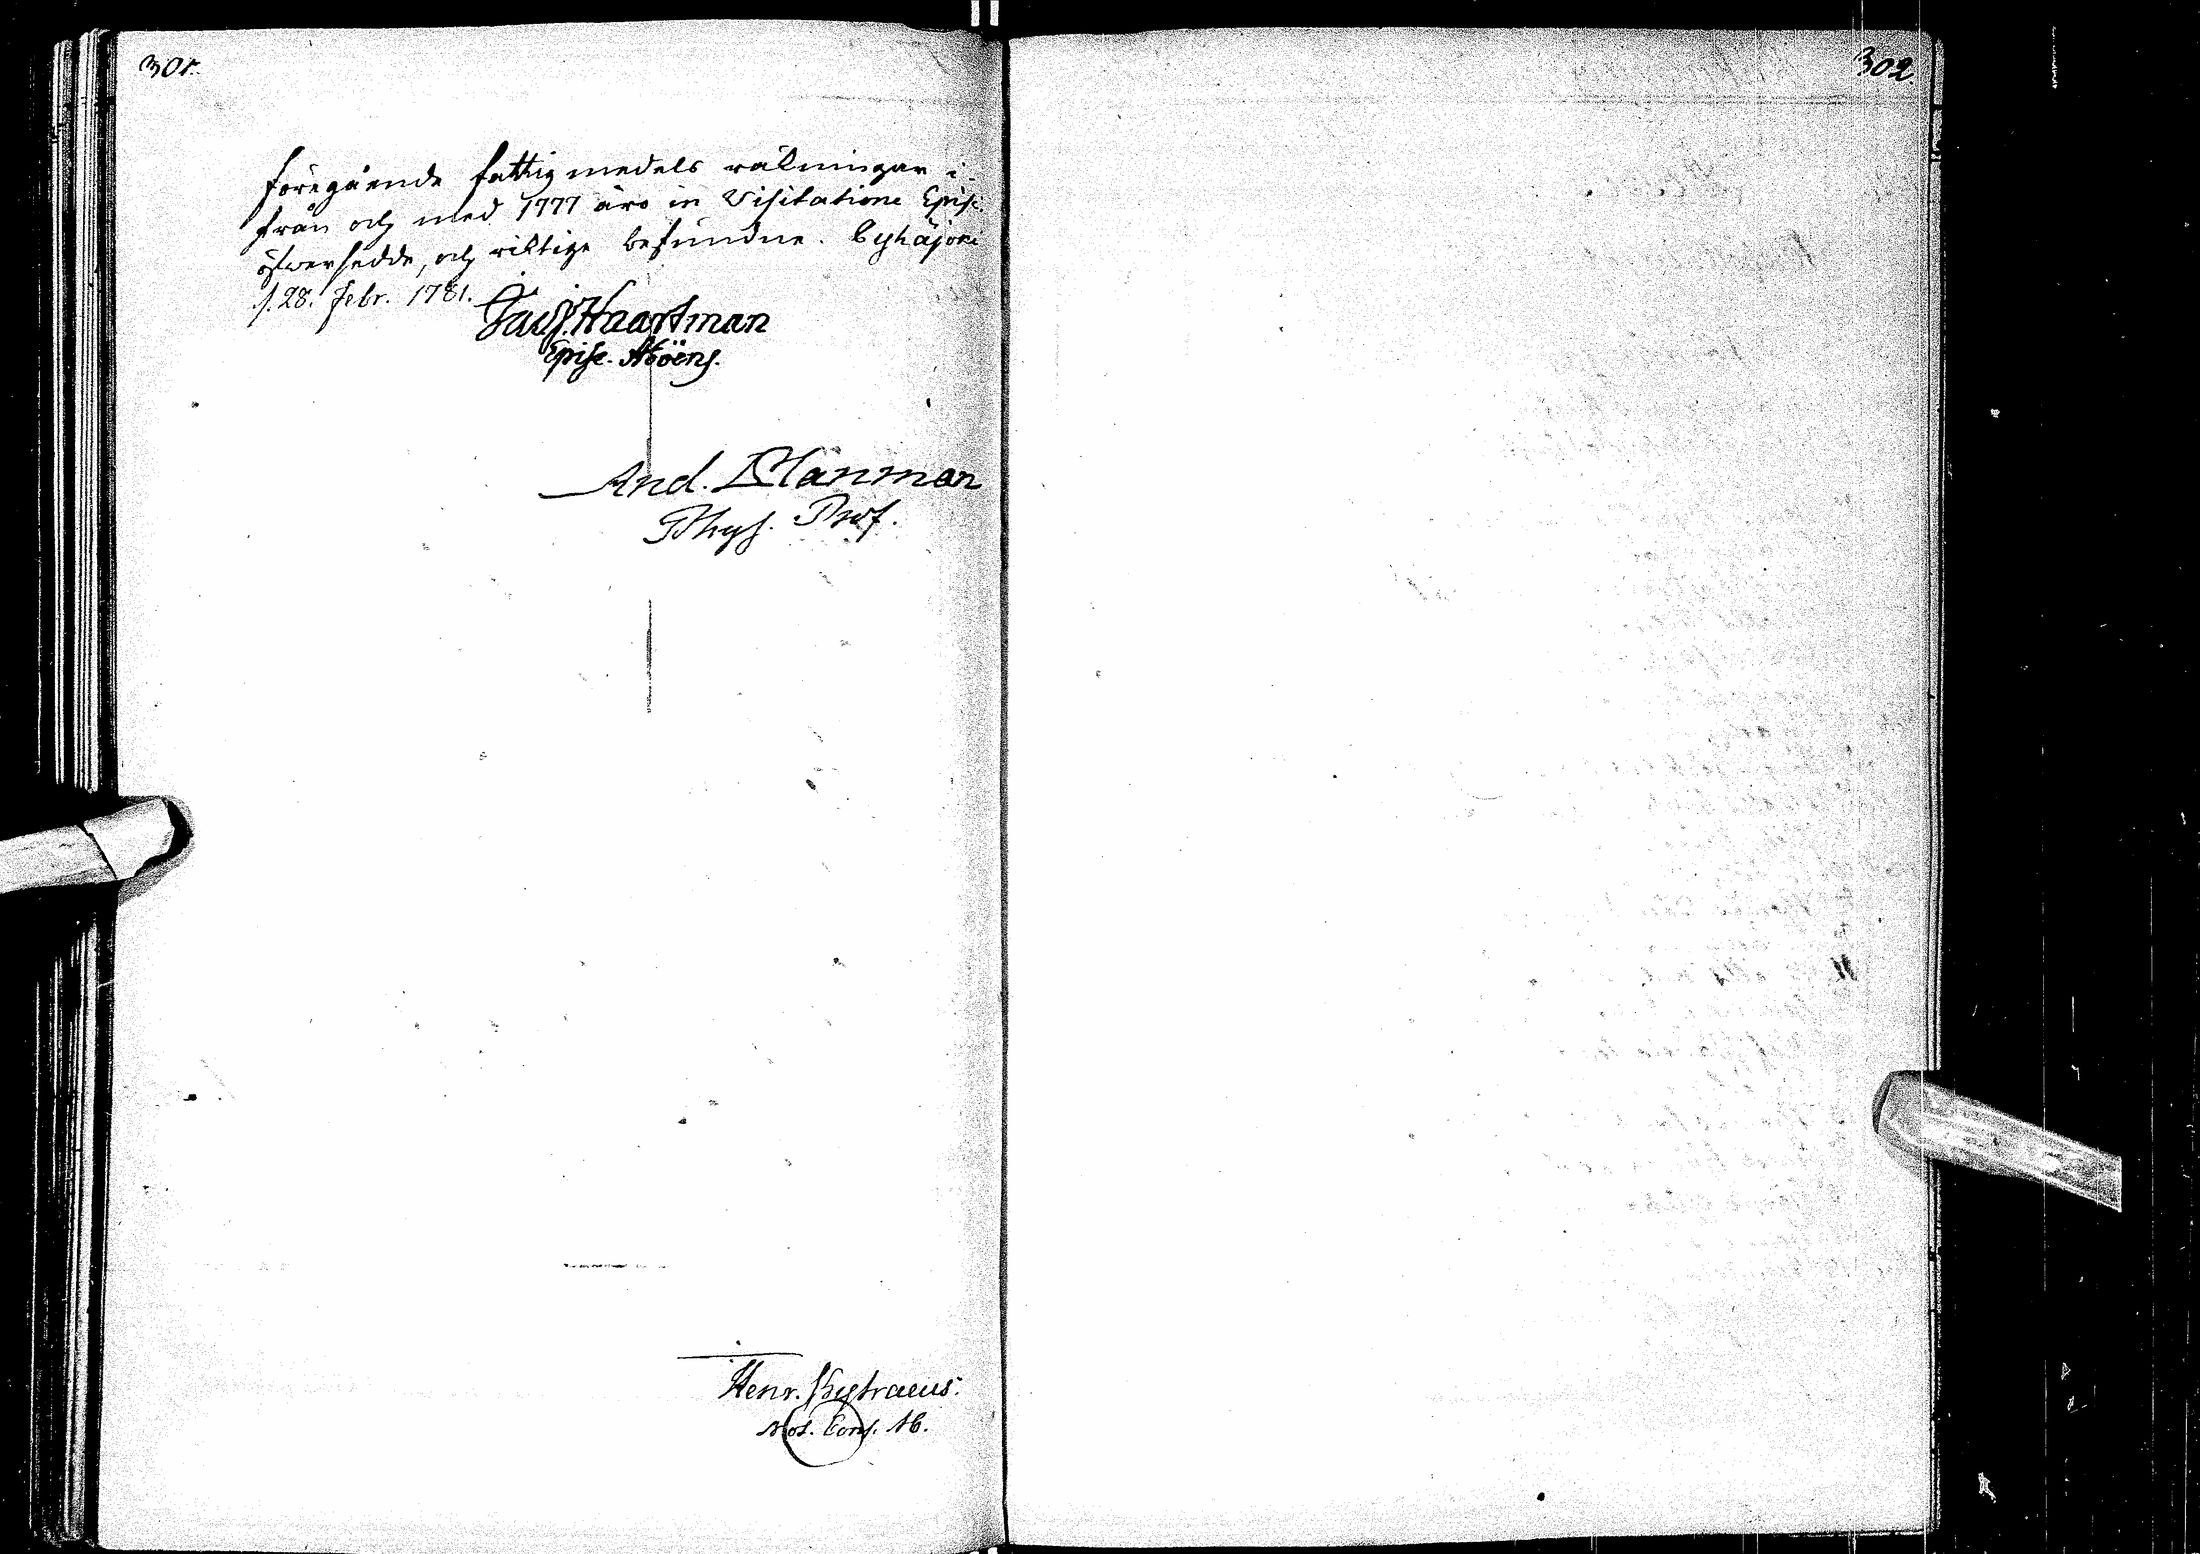 301.
302
föregående fattigmedels räkningar i-
från och med 1777 äro in Visitatione Episc.
öfwersedde, och riktige befundne.
d. 28. Febr. 1781.
Jac. Haartman
Episc. Aboëns.
And. Planman
Phys. Prof.
Henr.
Not. Cons. Ab.